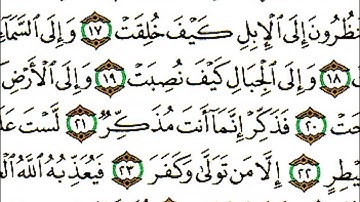 نظُرُونَ إِلَى ٱلْإِبِلِ كَيْفَ خُلِقَتْ ١٧ وَإِلَى ٱلسَّمَآ
١٨ وَإِلَى ٱلْجِبَالِ كَيْفَ نُصِبَتْ ١٩ وَإِلَى ٱلْأَرْضِ
٢٠ فَذَكِّرْ إِنَّمَآ أَنتَ مُذَكِّرٌ ٢١ لَّسْتَ عَلَ
٢٢ إِلَّا مَن تَوَلَّىٰ وَكَفَرَ ٢٣ فَيُعَذِّبُهُ ٱللَّهُ ٱلْعَ